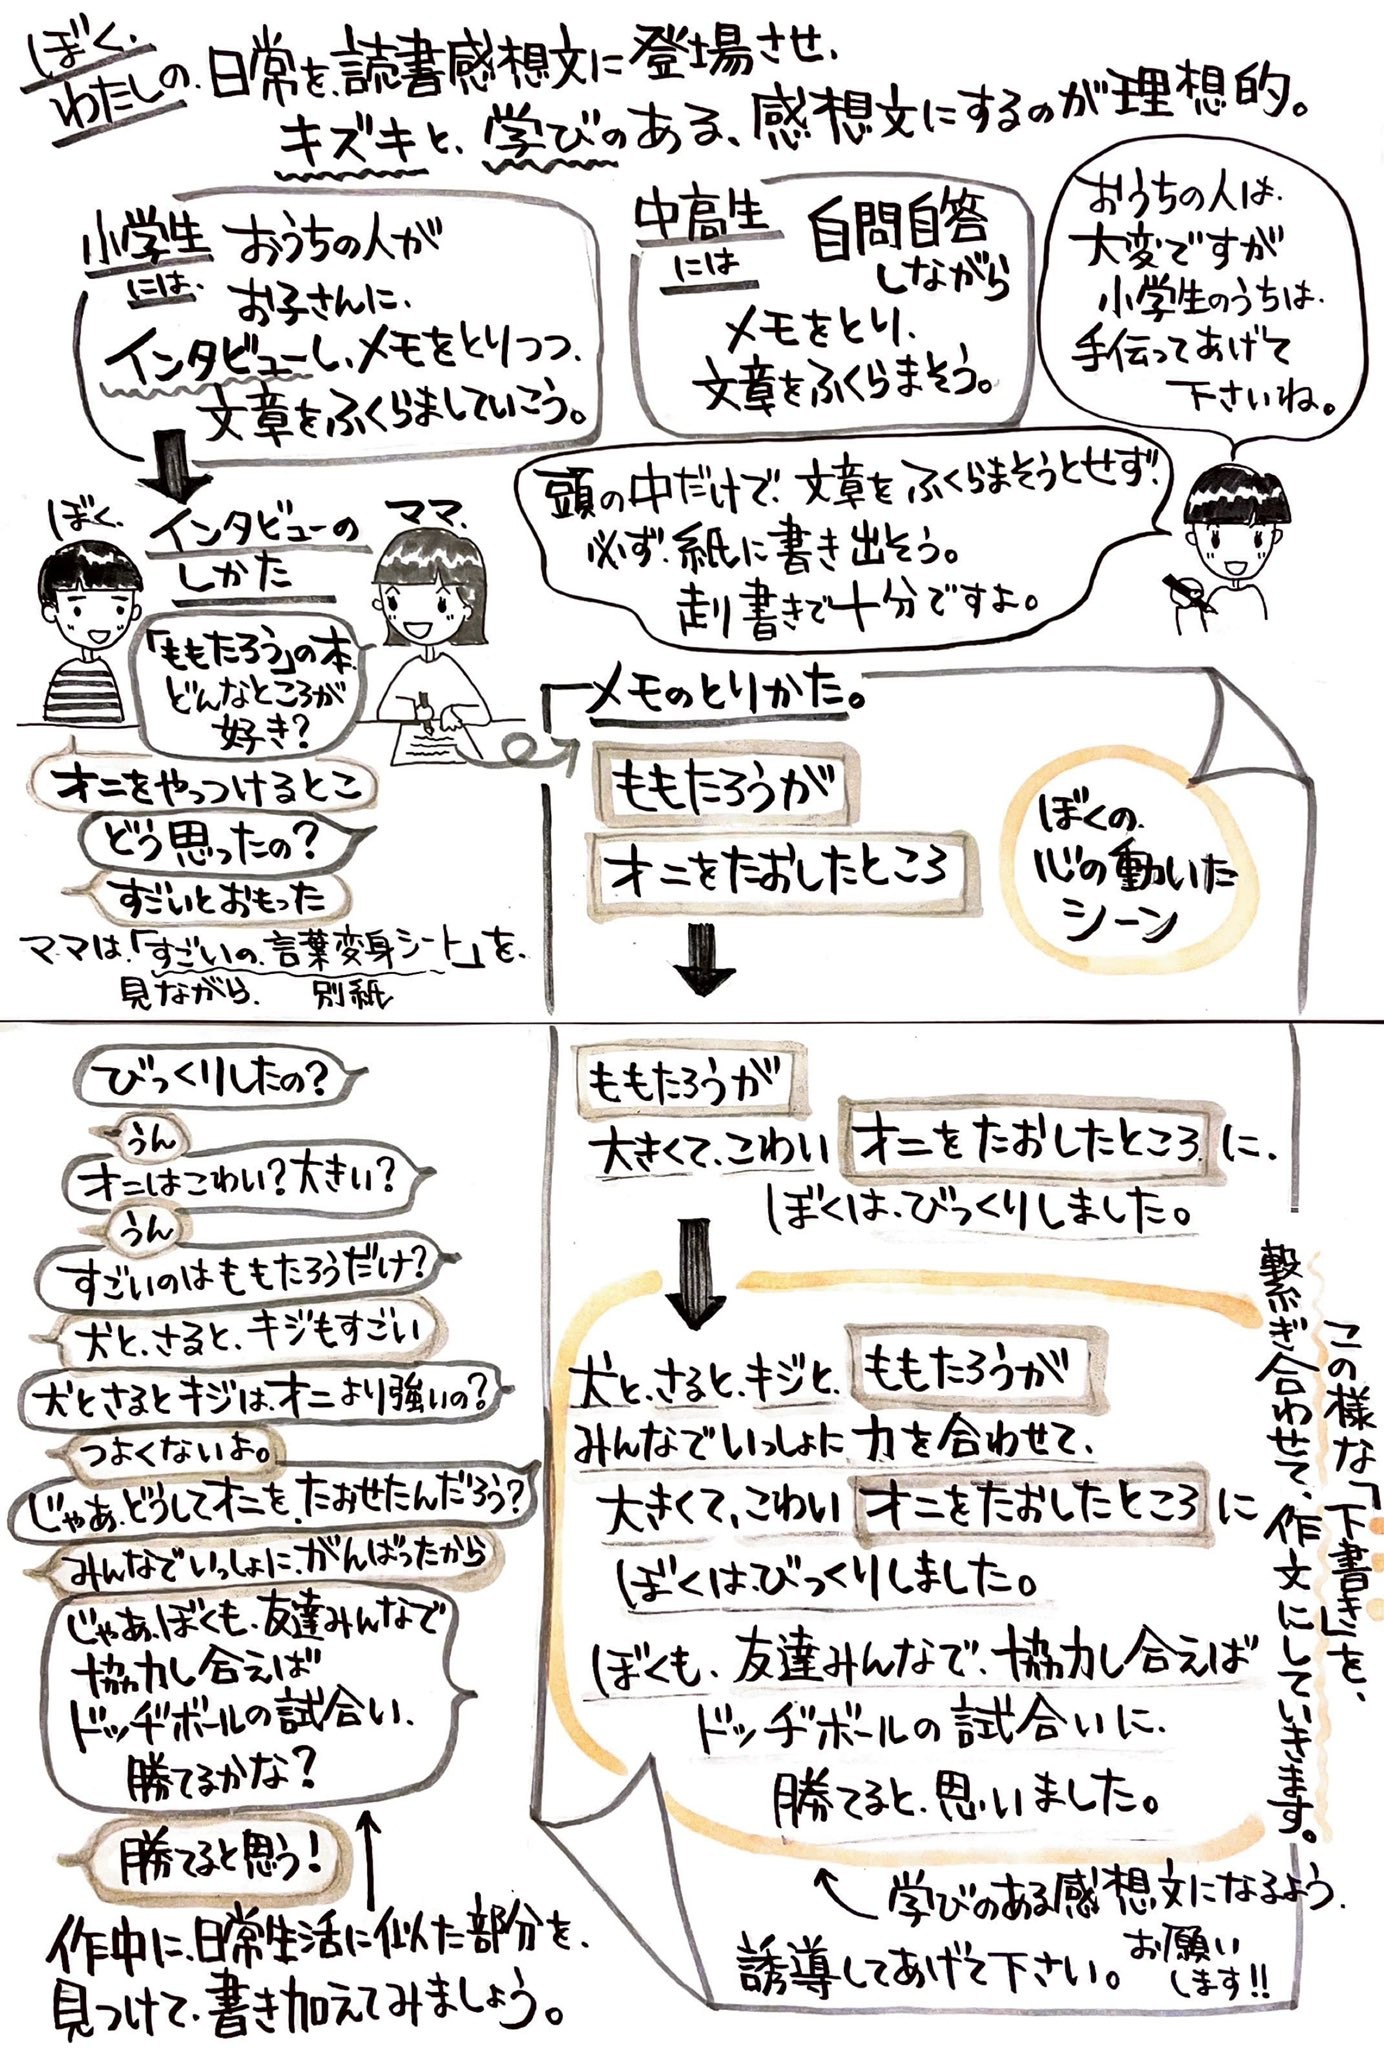 ぼく、
わたしの、日常を、読書感想文に登場させ、
キズキと、学びのある、感想文にするのが理想的。
小学生
には、
おうちの人が
お子さんに、
インタビューし、メモをとりつつ、
文章をふくらましていこう。
中高生
には
自問自答
しながら
メモをとり、
文章をふくらまそう。
おうちの人は、
大変ですが
小学生のうちは、
手伝ってあげて
下さいね。
頭の中だけで、文章をふくらまそうとせず、
必ず、紙に書き出そう。
走り書きで十分ですよ。
ぼく、
インタビューの
しかた
ママ、
「ももたろう」の本、
どんなところが
好き？
オニをやっつけるとこ
どう思ったの？
すごいとおもった
ママは、「すごいの、言葉変身シート」を、
見ながら、 別紙
メモのとりかた。
ももたろうが
オニをたおしたところ
ぼくの、
心の動いた
シーン
びっくりしたの？
うん
オニはこわい？大きい？
うん
すごいのはももたろうだけ？
犬と、さると、キジもすごい
犬とさるとキジは、オニより強いの？
つよくないよ。
じゃあ、どうしてオニを、たおせたんだろう？
みんなでいっしょに、がんばったから
じゃあ、ぼくも、友達みんなで
協力し合えば
ドッヂボールの試合い、
勝てるかな？
勝てると思う！
作中に、日常生活に似た部分を、
見つけて、書き加えてみましょう。
ももたろうが
大きくて、こわい オニをたおしたところ に、
ぼくは、びっくりしました。
犬と、さると、キジと、ももたろうが
みんなでいっしょに 力を合わせて、
大きくて、こわい オニをたおしたところ に
ぼくは、びっくりしました。
ぼくも、友達みんなで、協力し合えば
ドッヂボールの試合いに、
勝てると、思いました。
この様な「下書き」を、
繋ぎ合わせて、作文にしていきます。
学びのある感想文になるよう、
誘導してあげて下さい。お願い
します！！